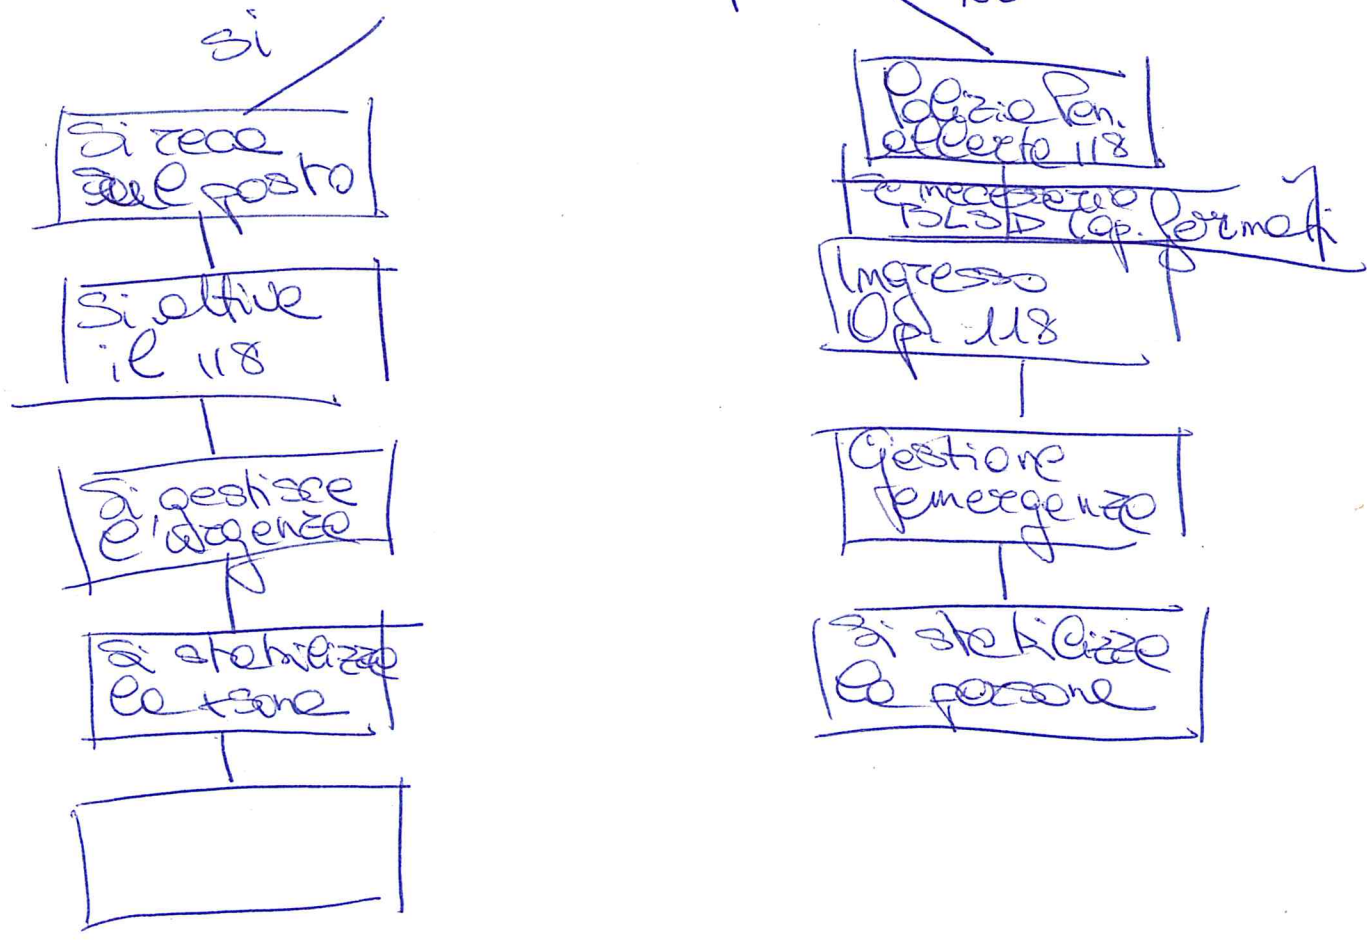 si
Si reca
sul posto
Si attiva
il 118
Si gestisce
l'urgenza
Si stabilizza
la +sona
Polizia Pen.
allerta 118
Se necessario
BLSD (op. formati)
Ingresso
Op. 118
Gestione
emergenza
Si stabilizza
la persona